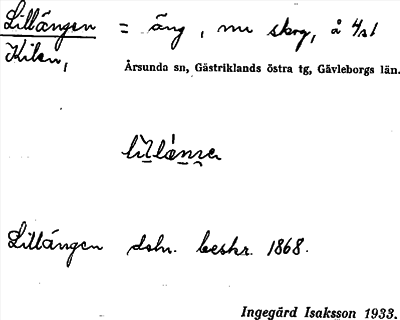 Lillängen = äng, nu skog, å 4/21
Kilen,
Årsunda sn, Gästriklands östra tg, Gävleborgs län.
Lillängen dsbr. beskr. 1868.
Ingegärd Isaksson 1933.